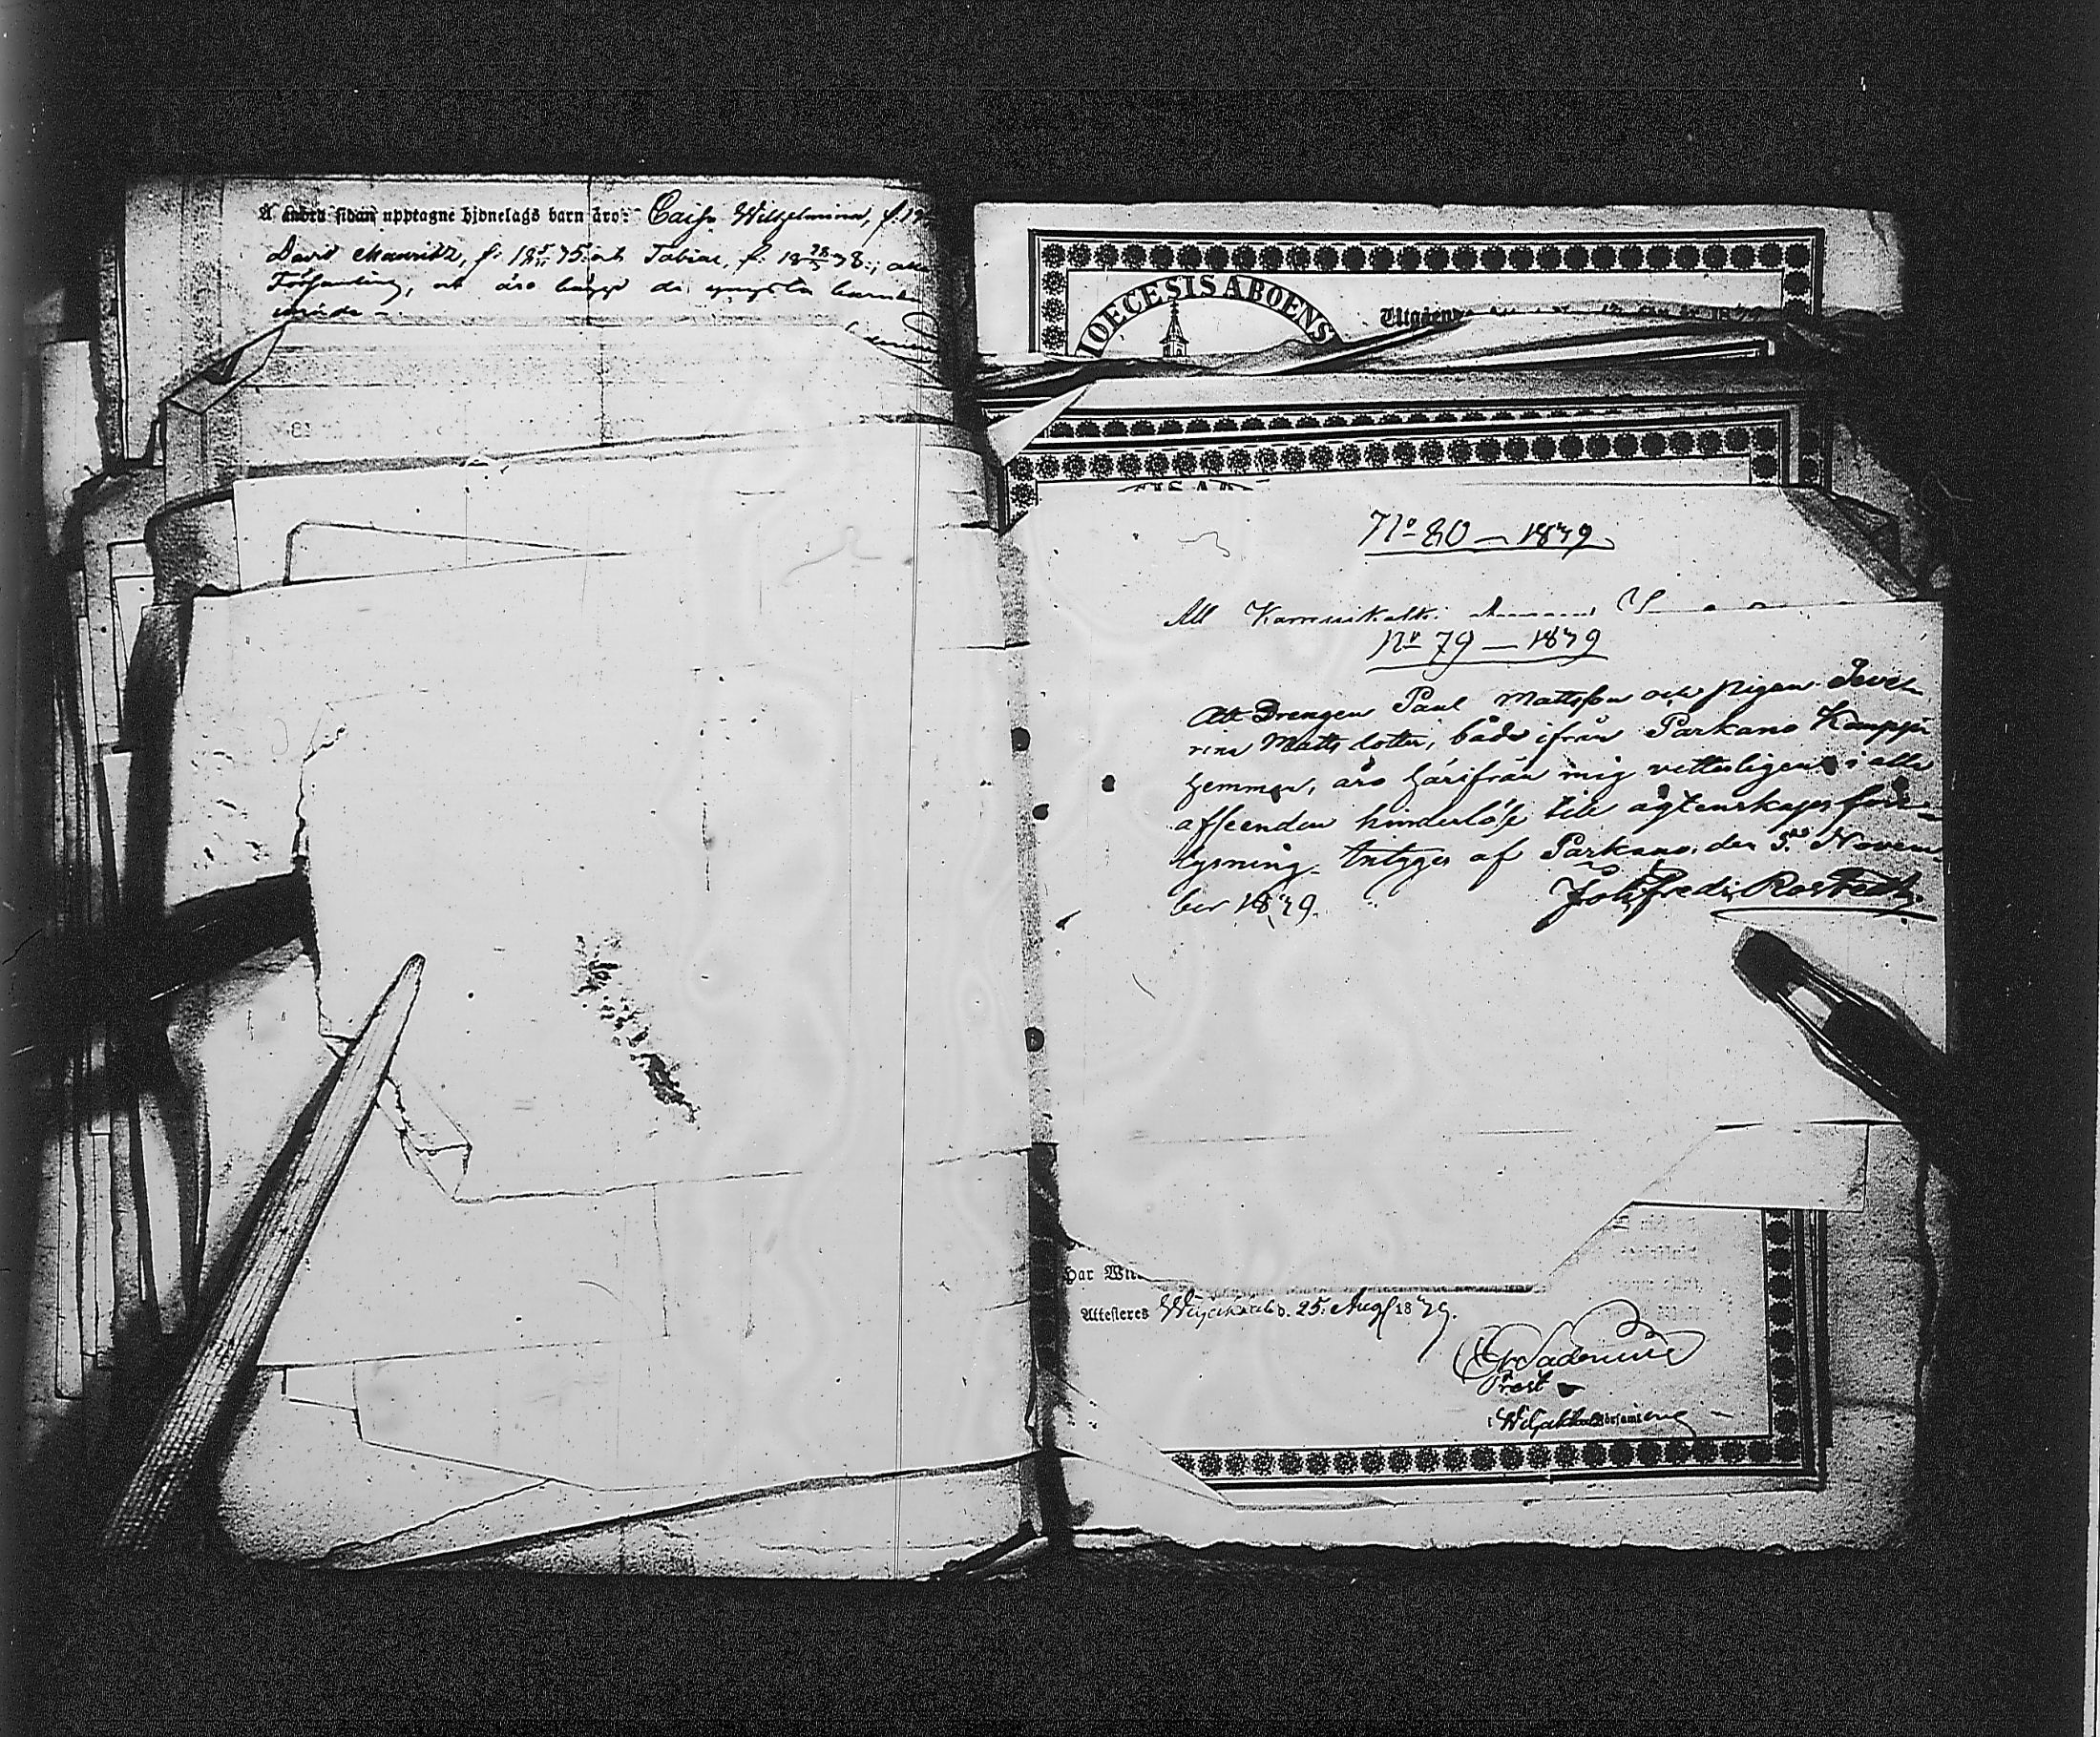 Å andra sidan upptagne hjonelags barn äro: Caisa Wilhelmina, f. 18
David Mauritz, f. 18 5/11 75. och Tobias, f. 18 28/3 78.;
Församling, och äro bägge de yngsta barnen
DIOECESIS ABOENS
Utgående
No 80 — 1879
All
No 79 — 1879
Att Drengen Paul Mattsson och Pigan Seve-
rina Mattsdotter, både ifrån Parkano Kamppi
hemman, äro härifrån mig vetterligen i alla
afseenden hinderlöse till ägtenskaps före-
lysning. Intyges af Parkano, den 5. Novem
ber 1879.
Joh. Fredr. Rosbeck
har
Attesteras Wiljakkala d. 25. Aug 1879.
Prest
i Wiljakkala församling